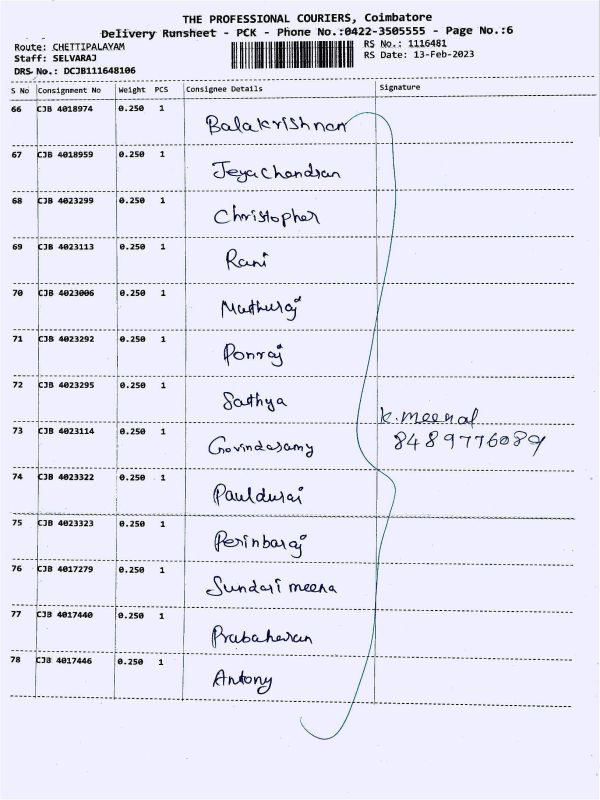 THE PROFESSIONAL COURIERS, Coimbatore
Delivery Runsheet - PCK - Phone No.:0422-3505555 - Page No.:6
Route: CHETTIPALAYAM RS No.: 1116481
Staff: SELVARAJ RS Date: 13-Feb-2023
DRS No.: DCJB111648106
S No Consignment No Weight PCS Consignee Details Signature
66 CJB 4018974 0.250 1 Balakrishnan
67 CJB 4018959 0.250 1 Jeyachandran
68 CJB 4023299 0.250 1 Christopher
69 CJB 4023113 0.250 1 Rani
70 CJB 4023006 0.250 1 Muthuraj
71 CJB 4023292 0.250 1 Ponraj
72 CJB 4023295 0.250 1 Sathya K.meenal
73 CJB 4023114 0.250 1 Govindasamy 8489776089
74 CJB 4023322 0.250 1 Pauldurai
75 CJB 4023323 0.250 1 Perinbaraj
76 CJB 4017279 0.250 1 Sundari meena
77 CJB 4017440 0.250 1 Prabaharan
78 CJB 4017446 0.250 1 Antony